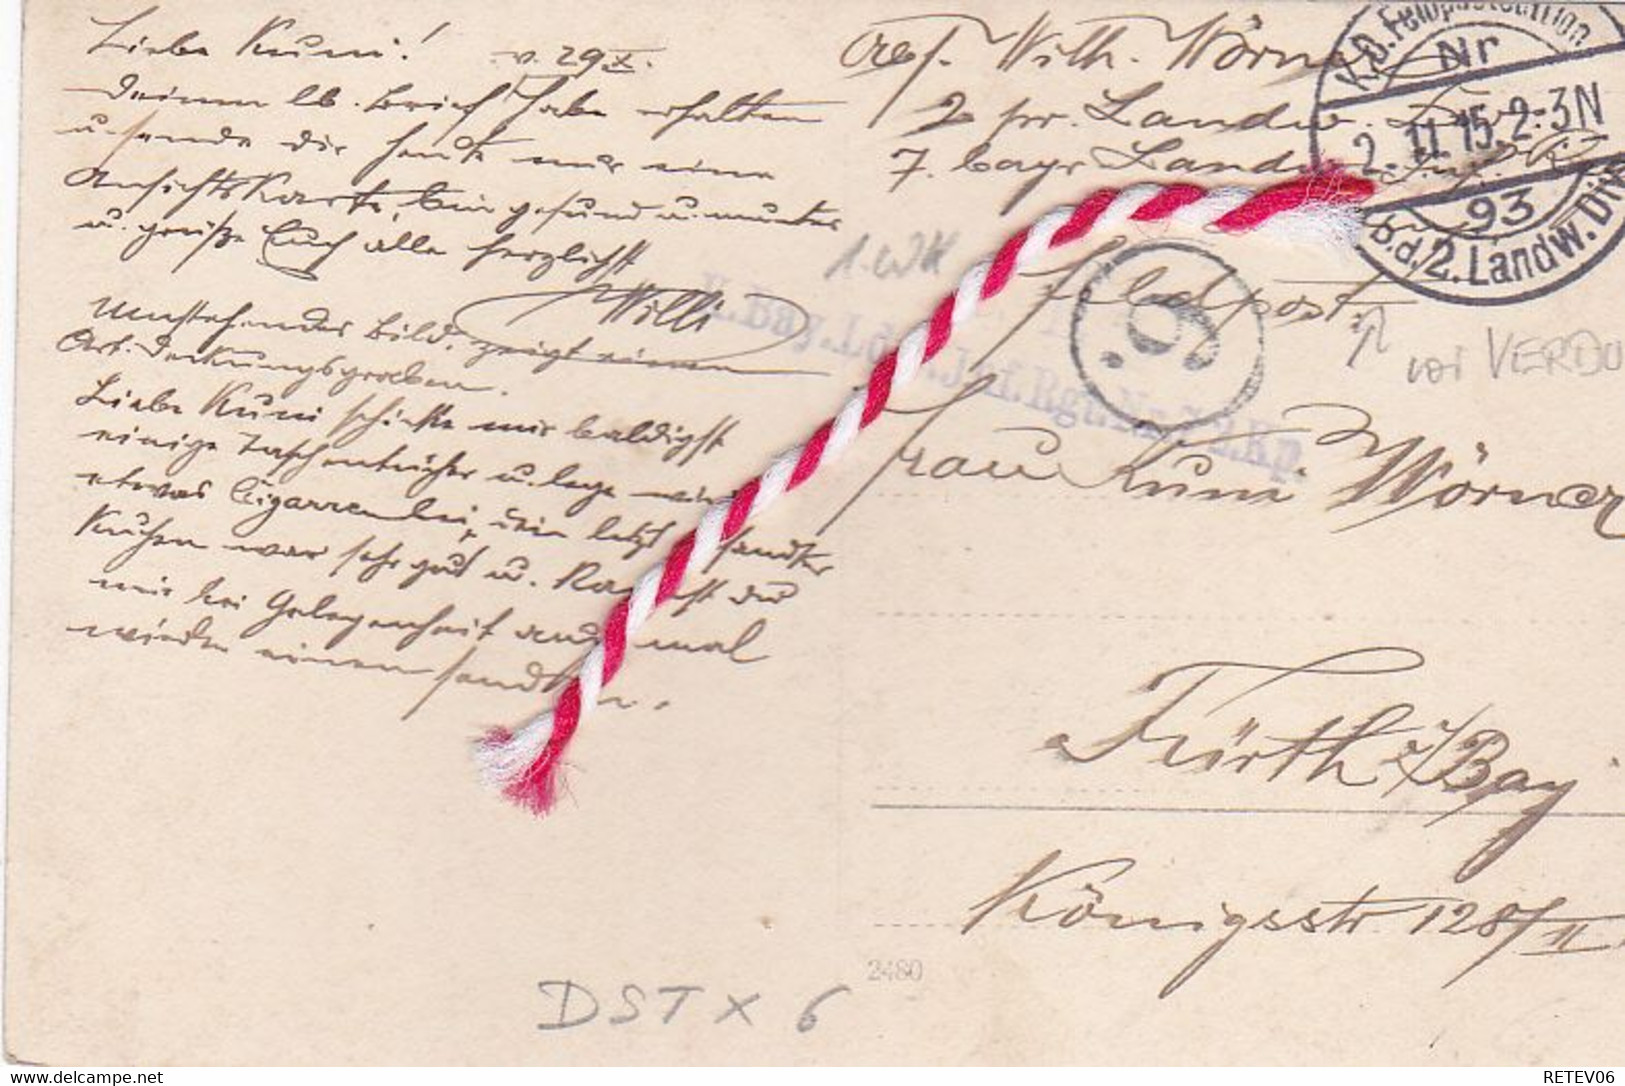 Liebe Kuni! v. 29 X.
Deinen lb. Brief habe erhalten
u. sende dir heute nur eine
Ansichtskarte, bin gesund u. munter
u. grüße Euch alle herzlichst
Willi
Umstehendes Bild zeigt einen
Art. Deckungsgraben.
Liebe Kuni schicke mir baldigst
einige Taschentücher u. lege mir
etwas Cigarren bei, dein letzt sandter
Kuchen war sehr gut u. kannst du
mir bei Gelegenheit auch mal
wieder einen senden.
DST X 6
Abs. Wilh. Wörner
2 pr. Landw. Div.
7. bayr. Landw. Inf. R.
Feldpost
1. WK
K.D. Feldpoststation
Nr
2. 11. 15. 2-3N
93
b.d. 2. Landw. Div
9.
Bay. Ldw. Inf. Rgt. Nr. 7 2. Kp.
vor VERDU
Frau Kuni Wörner
Fürth i/Bay
Königsstr 128/II
2480
delcampe.net
RETEV06